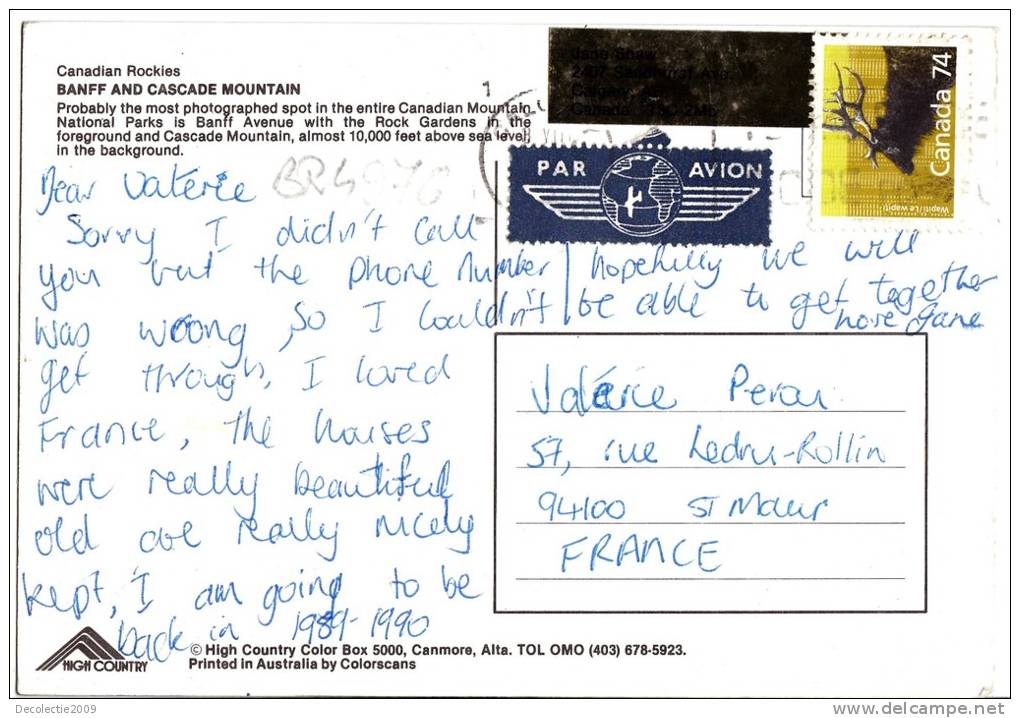 Canadian Rockies
BANFF AND CASCADE MOUNTAIN
Probably the most photographed spot in the entire Canadian Mountain
National Parks is Banff Avenue with the Rock Gardens in the
foreground and Cascade Mountain, almost 10,000 feet above sea level
in the background.
Jane Shaw
Calgary
Canada
Canada 74
Wapiti/Le wapiti
PAR AVION
Dear Valerie
Sorry I didn't call
you but the phone number
was wrong, so I couldn't
get through, I loved
France, the houses
were really beautiful
old and really nicely
kept, I am going to be
back in 1989-1990
hopefully we will
be able to get together
Valérie
57, rue Ledru-Rollin
94100 St Maur
FRANCE
HIGH COUNTRY
© High Country Color Box 5000, Canmore, Alta. TOL OMO (403) 678-5923.
Printed in Australia by Colorscans
Decolectie2009
delcampe.net